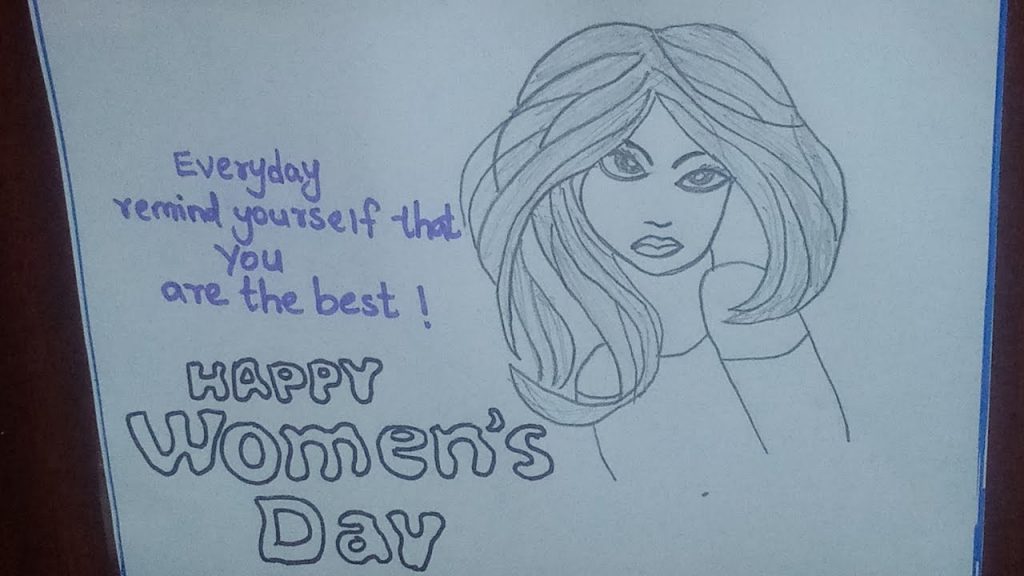 Everyday
remind yourself that
You
are the best !
HAPPY
Women's
Day